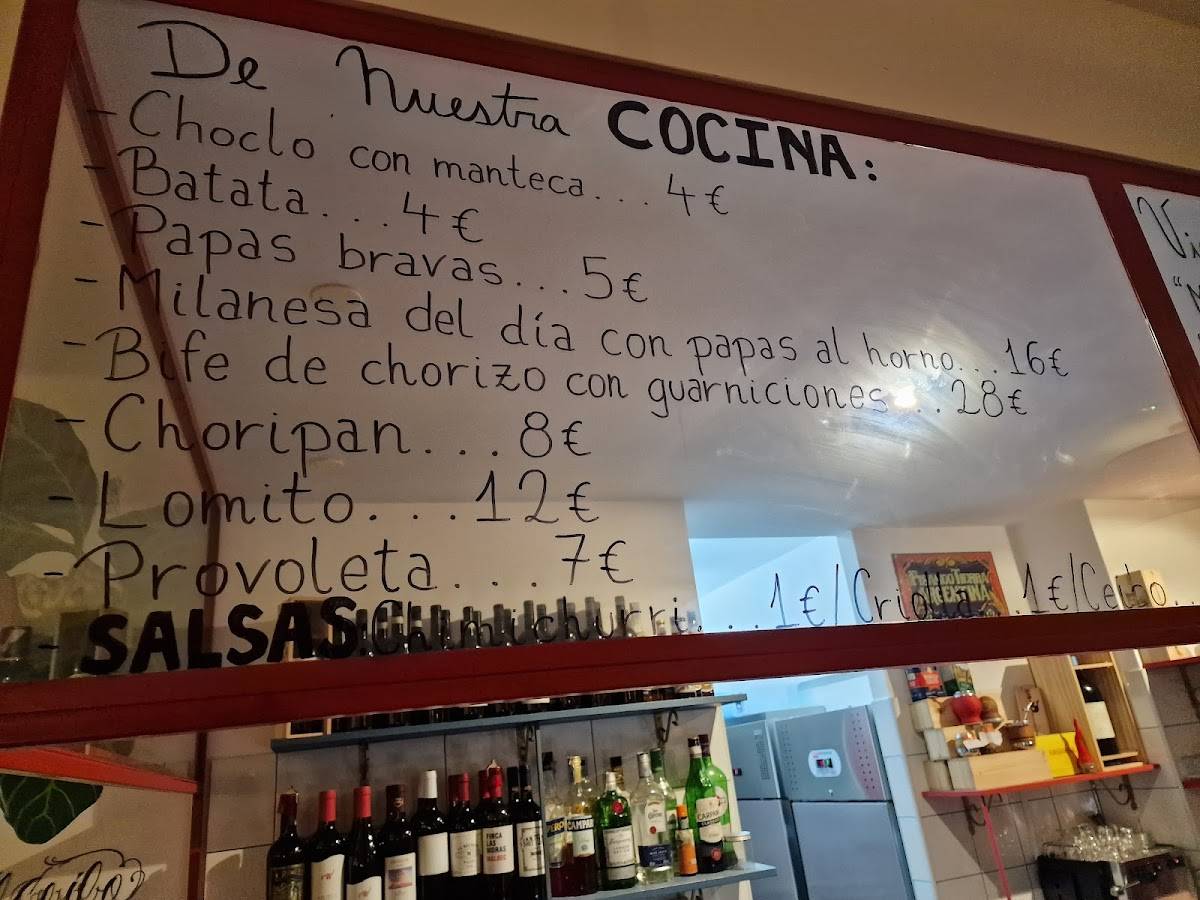 De Nuestra COCINA:
- Choclo con manteca... 4€
- Batata... 4€
- Papas bravas... 5€
- Milanesa del día con papas al horno... 16€
- Bife de chorizo con guarniciones... 28€
- Choripan... 8€
- Lomito.... 12€
- Provoleta.... 7€
- SALSAS: Chimichurri... 1€/Criolla..1€/
FINCA
LAS MORAS
MALBEC
CAMPARI
CARPANO